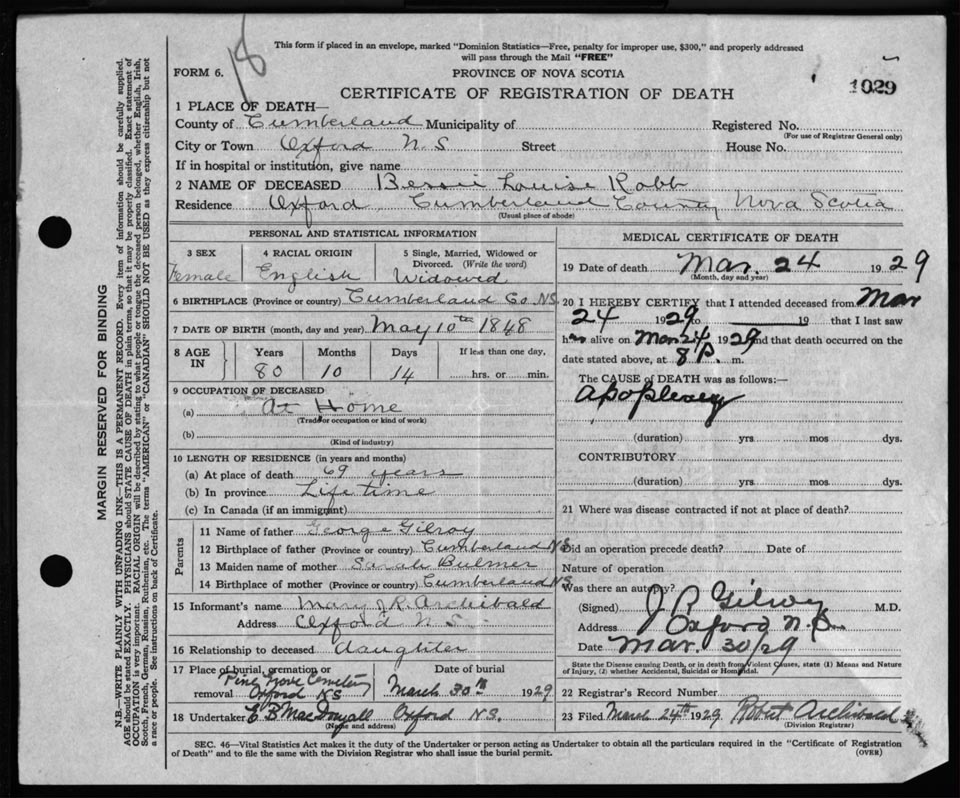 18
This form if placed in an envelope, marked "Dominion Statistics—Free, penalty for improper use, $300," and properly addressed
will pass through the Mail "FREE"
FORM 6.
PROVINCE OF NOVA SCOTIA
1029
CERTIFICATE OF REGISTRATION OF DEATH
1 PLACE OF DEATH—
County of Cumberland Municipality of Registered No.
(For use of Registrar General only)
City or Town Oxford N.S Street House No.
If in hospital or institution, give name
2 NAME OF DECEASED Bessie Louise Robb
Residence Oxford Cumberland County Nova Scotia
(Usual place of abode)
PERSONAL AND STATISTICAL INFORMATION
3 SEX 4 RACIAL ORIGIN 5 Single, Married, Widowed or
Divorced. (Write the word)
Female English Widowed
6 BIRTHPLACE (Province or country) Cumberland Co. N.S.
7 DATE OF BIRTH (month, day and year) May 10th 1848
8 AGE IN Years Months Days If less than one day,
80 10 14 hrs. or min.
9 OCCUPATION OF DECEASED
(a) At Home
(Trade or occupation or kind of work)
(b)
(Kind of industry)
10 LENGTH OF RESIDENCE (in years and months)
(a) At place of death 69 years
(b) In province Life time
(c) In Canada (if an immigrant)
Parents
11 Name of father George Gilroy
12 Birthplace of father (Province or country) Cumberland N.S.
13 Maiden name of mother Sarah Bulmer
14 Birthplace of mother (Province or country) Cumberland N.S.
15 Informant's name Mary J.R. Archibald
Address Oxford N.S.
16 Relationship to deceased daughter
17 Place of burial, cremation or Date of burial
removal Pine Grove Cemetery
Oxford NS March 30th 1929
18 Undertaker E B MacDougall Oxford N.S.
(Name and address)
MEDICAL CERTIFICATE OF DEATH
19 Date of death Mar. 24 1929
(Month, day and year)
20 I HEREBY CERTIFY that I attended deceased from Mar
24 1929 to 19 that I last saw
h alive on Mar 24 1929 and that death occurred on the
date stated above, at 8 P. m.
The CAUSE of DEATH was as follows:—
apoplexy
(duration) yrs mos dys.
CONTRIBUTORY
(duration) yrs. mos dys.
21 Where was disease contracted if not at place of death?
Did an operation precede death? Date of
Nature of operation
Was there an autopsy?
(Signed) J. R. Gilroy M.D.
Address Oxford N.S.
Date Mar. 30/29
State the Disease causing Death, or in death from Violent Causes, state (1) Means and Nature
of Injury, (2) whether Accidental, Suicidal or Homicidal.
22 Registrar's Record Number
23 Filed March 24th 1929 Robert Archibald
(Division Registrar)
SEC. 46—Vital Statistics Act makes it the duty of the Undertaker or person acting as Undertaker to obtain all the particulars required in the "Certificate of Registration
of Death" and to file the same with the Division Registrar who shall issue the burial permit.
(OVER)
MARGIN RESERVED FOR BINDING
N.B.—WRITE PLAINLY WITH UNFADING INK—THIS IS A PERMANENT RECORD. Every item of information should be carefully supplied.
AGE should be stated EXACTLY. PHYSICIANS should STATE CAUSE OF DEATH in plain terms, so that it may be properly classified. Exact statement of
OCCUPATION is very important. RACIAL ORIGIN will be described by stating to what people or tongue the deceased person belonged, whether English, Irish,
Scotch, French, German, Russian, Ruthenian, etc. The terms "AMERICAN" or "CANADIAN" SHOULD NOT BE USED as they express citizenship but not
a race or people. See instructions on back of Certificate.